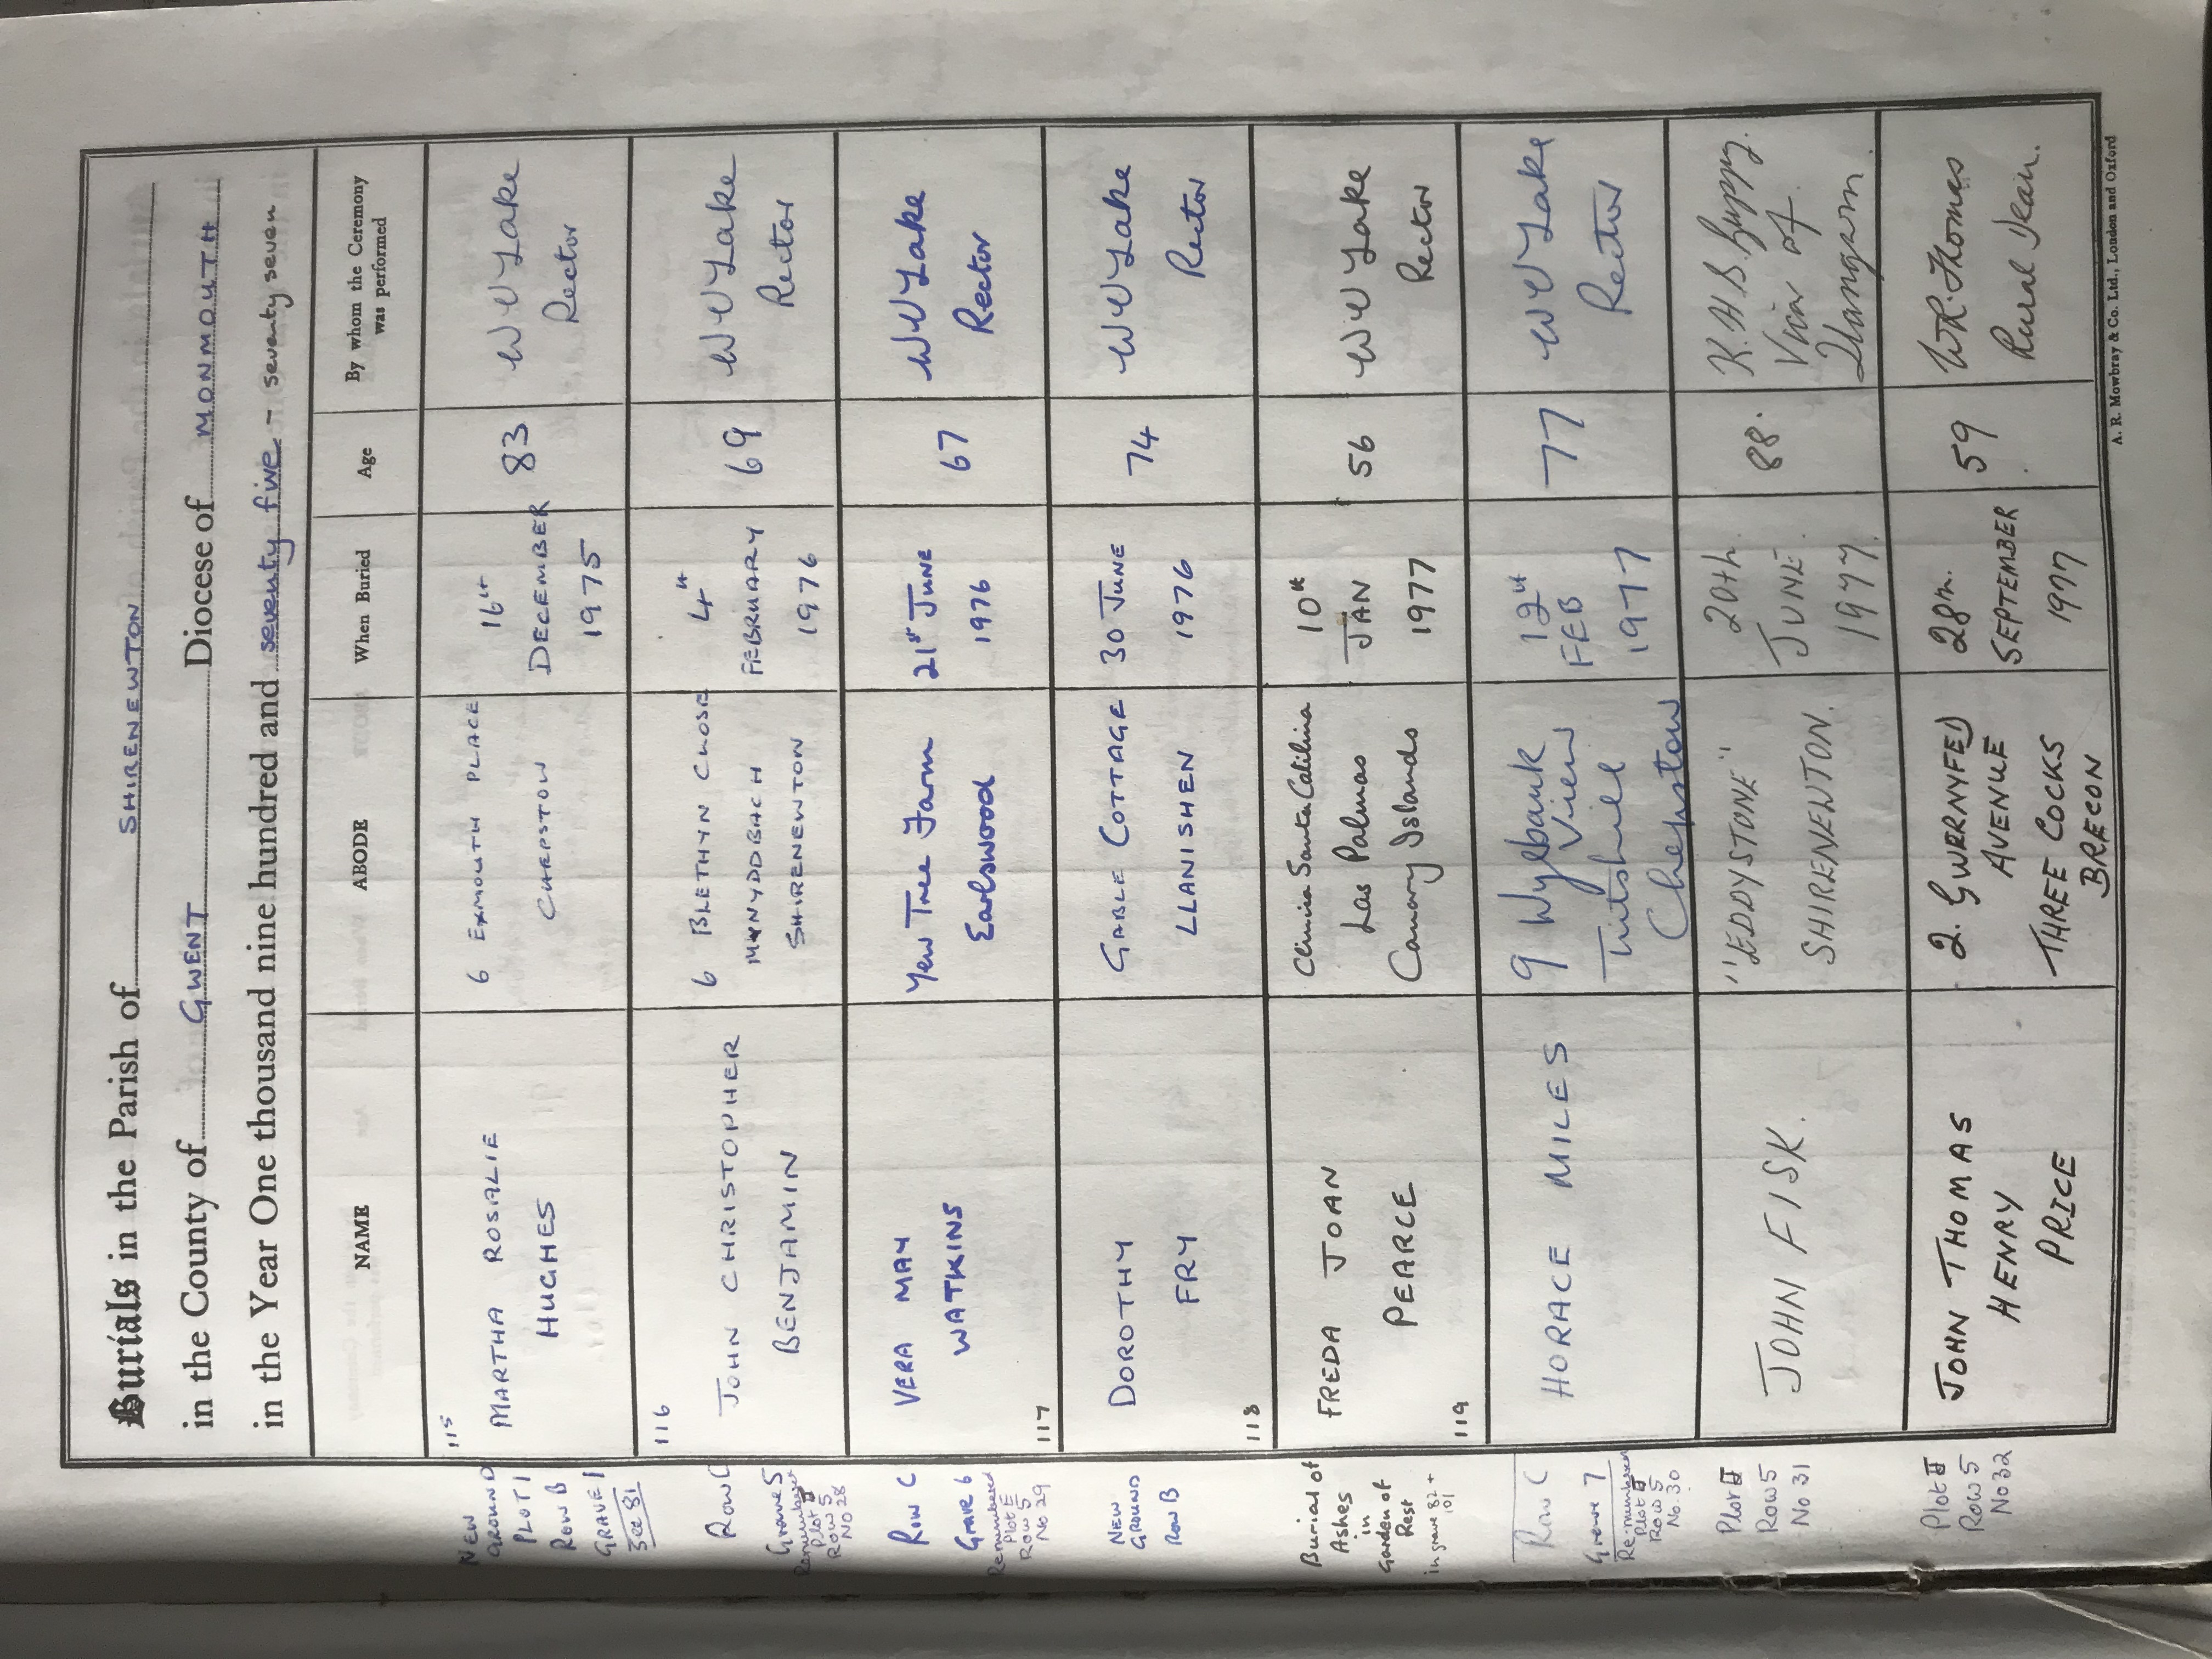 Burials in the Parish of SHIRENEWTON
in the County of GWENT Diocese of MONMOUTH
in the Year One thousand nine hundred and seventy five - seventy seven
NAME ABODE When Buried Age By whom the Ceremony was performed
NEW
GROUND
PLOT 1
ROW B
GRAVE 1
See 81
115
MARTHA ROSALIE
HUGHES
6 EXMOUTH PLACE
CHEPSTOW
16th
DECEMBER
1975
83
W V Lake
Rector
Row C
Grave 5
Renumbered
Plot II
Row 5
No 28
116
JOHN CHRISTOPHER
BENJAMIN
6 BLETHYN CLOSE
MYNYDDBACH
SHIRENEWTON
4th
FEBRUARY
1976
69
W V Lake
Rector
Row C
Grave 6
Renumbered
Plot II
Row 5
No 29
VERA MAY
WATKINS
117
Yew Tree Farm
Earlswood
21st JUNE
1976
67
W V Lake
Rector
NEW
GROUND
ROW B
DOROTHY
FRY
118
GABLE COTTAGE
LLANISHEN
30 JUNE
1976
74
W V Lake
Rector
Burial of
Ashes
in
Garden of
Rest
in grave 82 +
101
FREDA JOAN
PEARCE
119
Clinica Santa Catilina
Las Palmas
Canary Islands
10th
JAN
1977
56
W V Lake
Rector
Row C
Grave 7
Re-numbered
Plot II
Row 5
No. 30
HORACE MILES
9 Wyebank
View
Tutshill
Chepstow
12th
FEB
1977
77
W V Lake
Rector
Plot II
Row 5
No 31
JOHN FISK.
"EDDYSTONE"
SHIRENEWTON.
20th
JUNE.
1977.
88.
K. H. S. Guppy.
Vicar of
Llangwm
Plot II
Row 5
No 32
JOHN THOMAS
HENRY
PRICE
2. GWERNYFED
AVENUE
THREE COCKS
BRECON
28th.
SEPTEMBER
1977
59
W.R. Thomas
Rural Dean.
A. R. Mowbray & Co. Ltd., London and Oxford